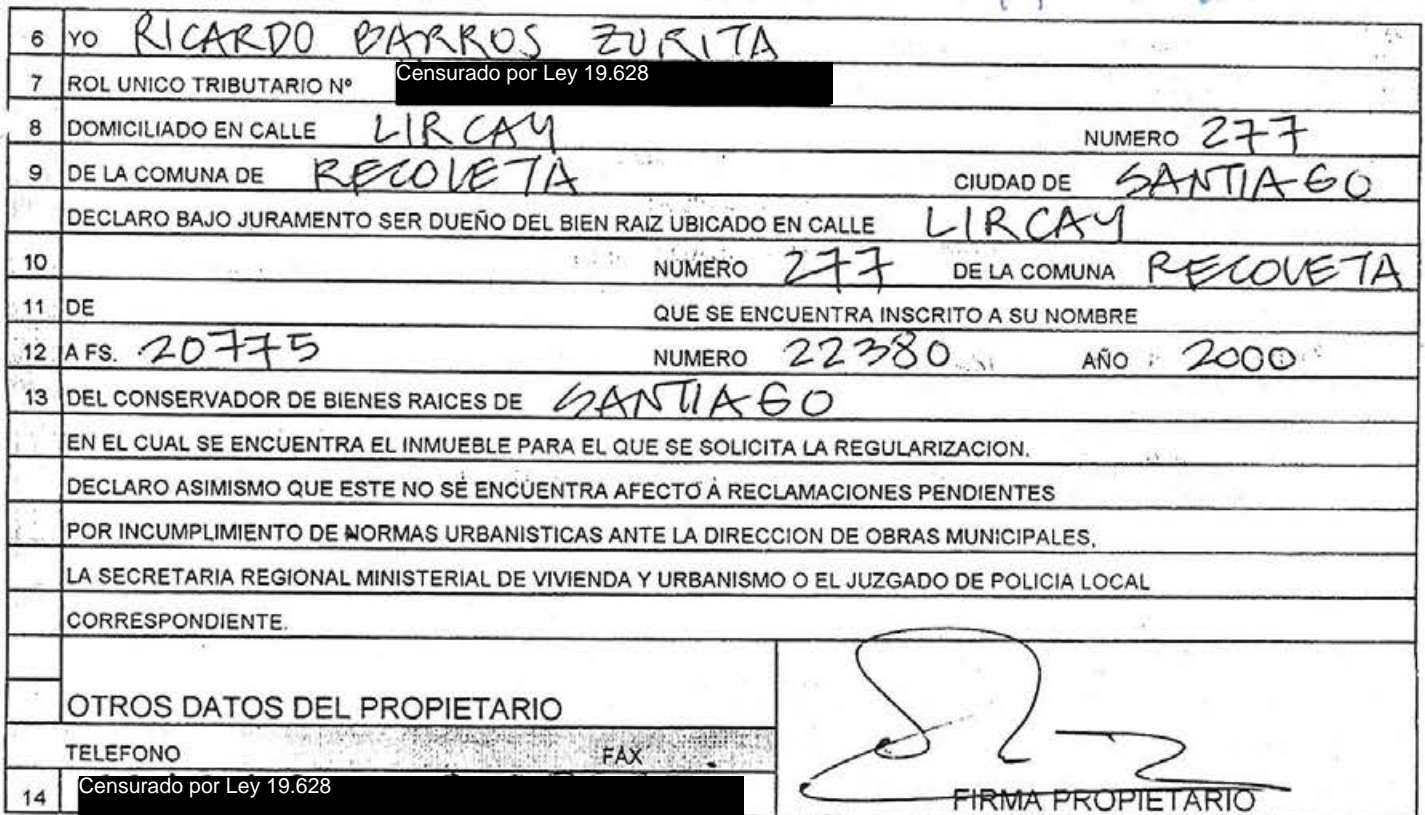 6 YO RICARDO BARROS ZURITA
7 ROL UNICO TRIBUTARIO Nº Censurado por Ley 19.628
8 DOMICILIADO EN CALLE LIRCAY NUMERO 277
9 DE LA COMUNA DE RECOLETA CIUDAD DE SANTIAGO
DECLARO BAJO JURAMENTO SER DUEÑO DEL BIEN RAIZ UBICADO EN CALLE LIRCAY
10 NUMERO 277 DE LA COMUNA RECOLETA
11 DE QUE SE ENCUENTRA INSCRITO A SU NOMBRE
12 A FS. 20775 NUMERO 22380 AÑO 2000
13 DEL CONSERVADOR DE BIENES RAICES DE SANTIAGO
EN EL CUAL SE ENCUENTRA EL INMUEBLE PARA EL QUE SE SOLICITA LA REGULARIZACION.
DECLARO ASIMISMO QUE ESTE NO SE ENCUENTRA AFECTO A RECLAMACIONES PENDIENTES
POR INCUMPLIMIENTO DE NORMAS URBANISTICAS ANTE LA DIRECCION DE OBRAS MUNICIPALES,
LA SECRETARIA REGIONAL MINISTERIAL DE VIVIENDA Y URBANISMO O EL JUZGADO DE POLICIA LOCAL
CORRESPONDIENTE.
OTROS DATOS DEL PROPIETARIO
TELEFONO FAX
14 Censurado por Ley 19.628
FIRMA PROPIETARIO